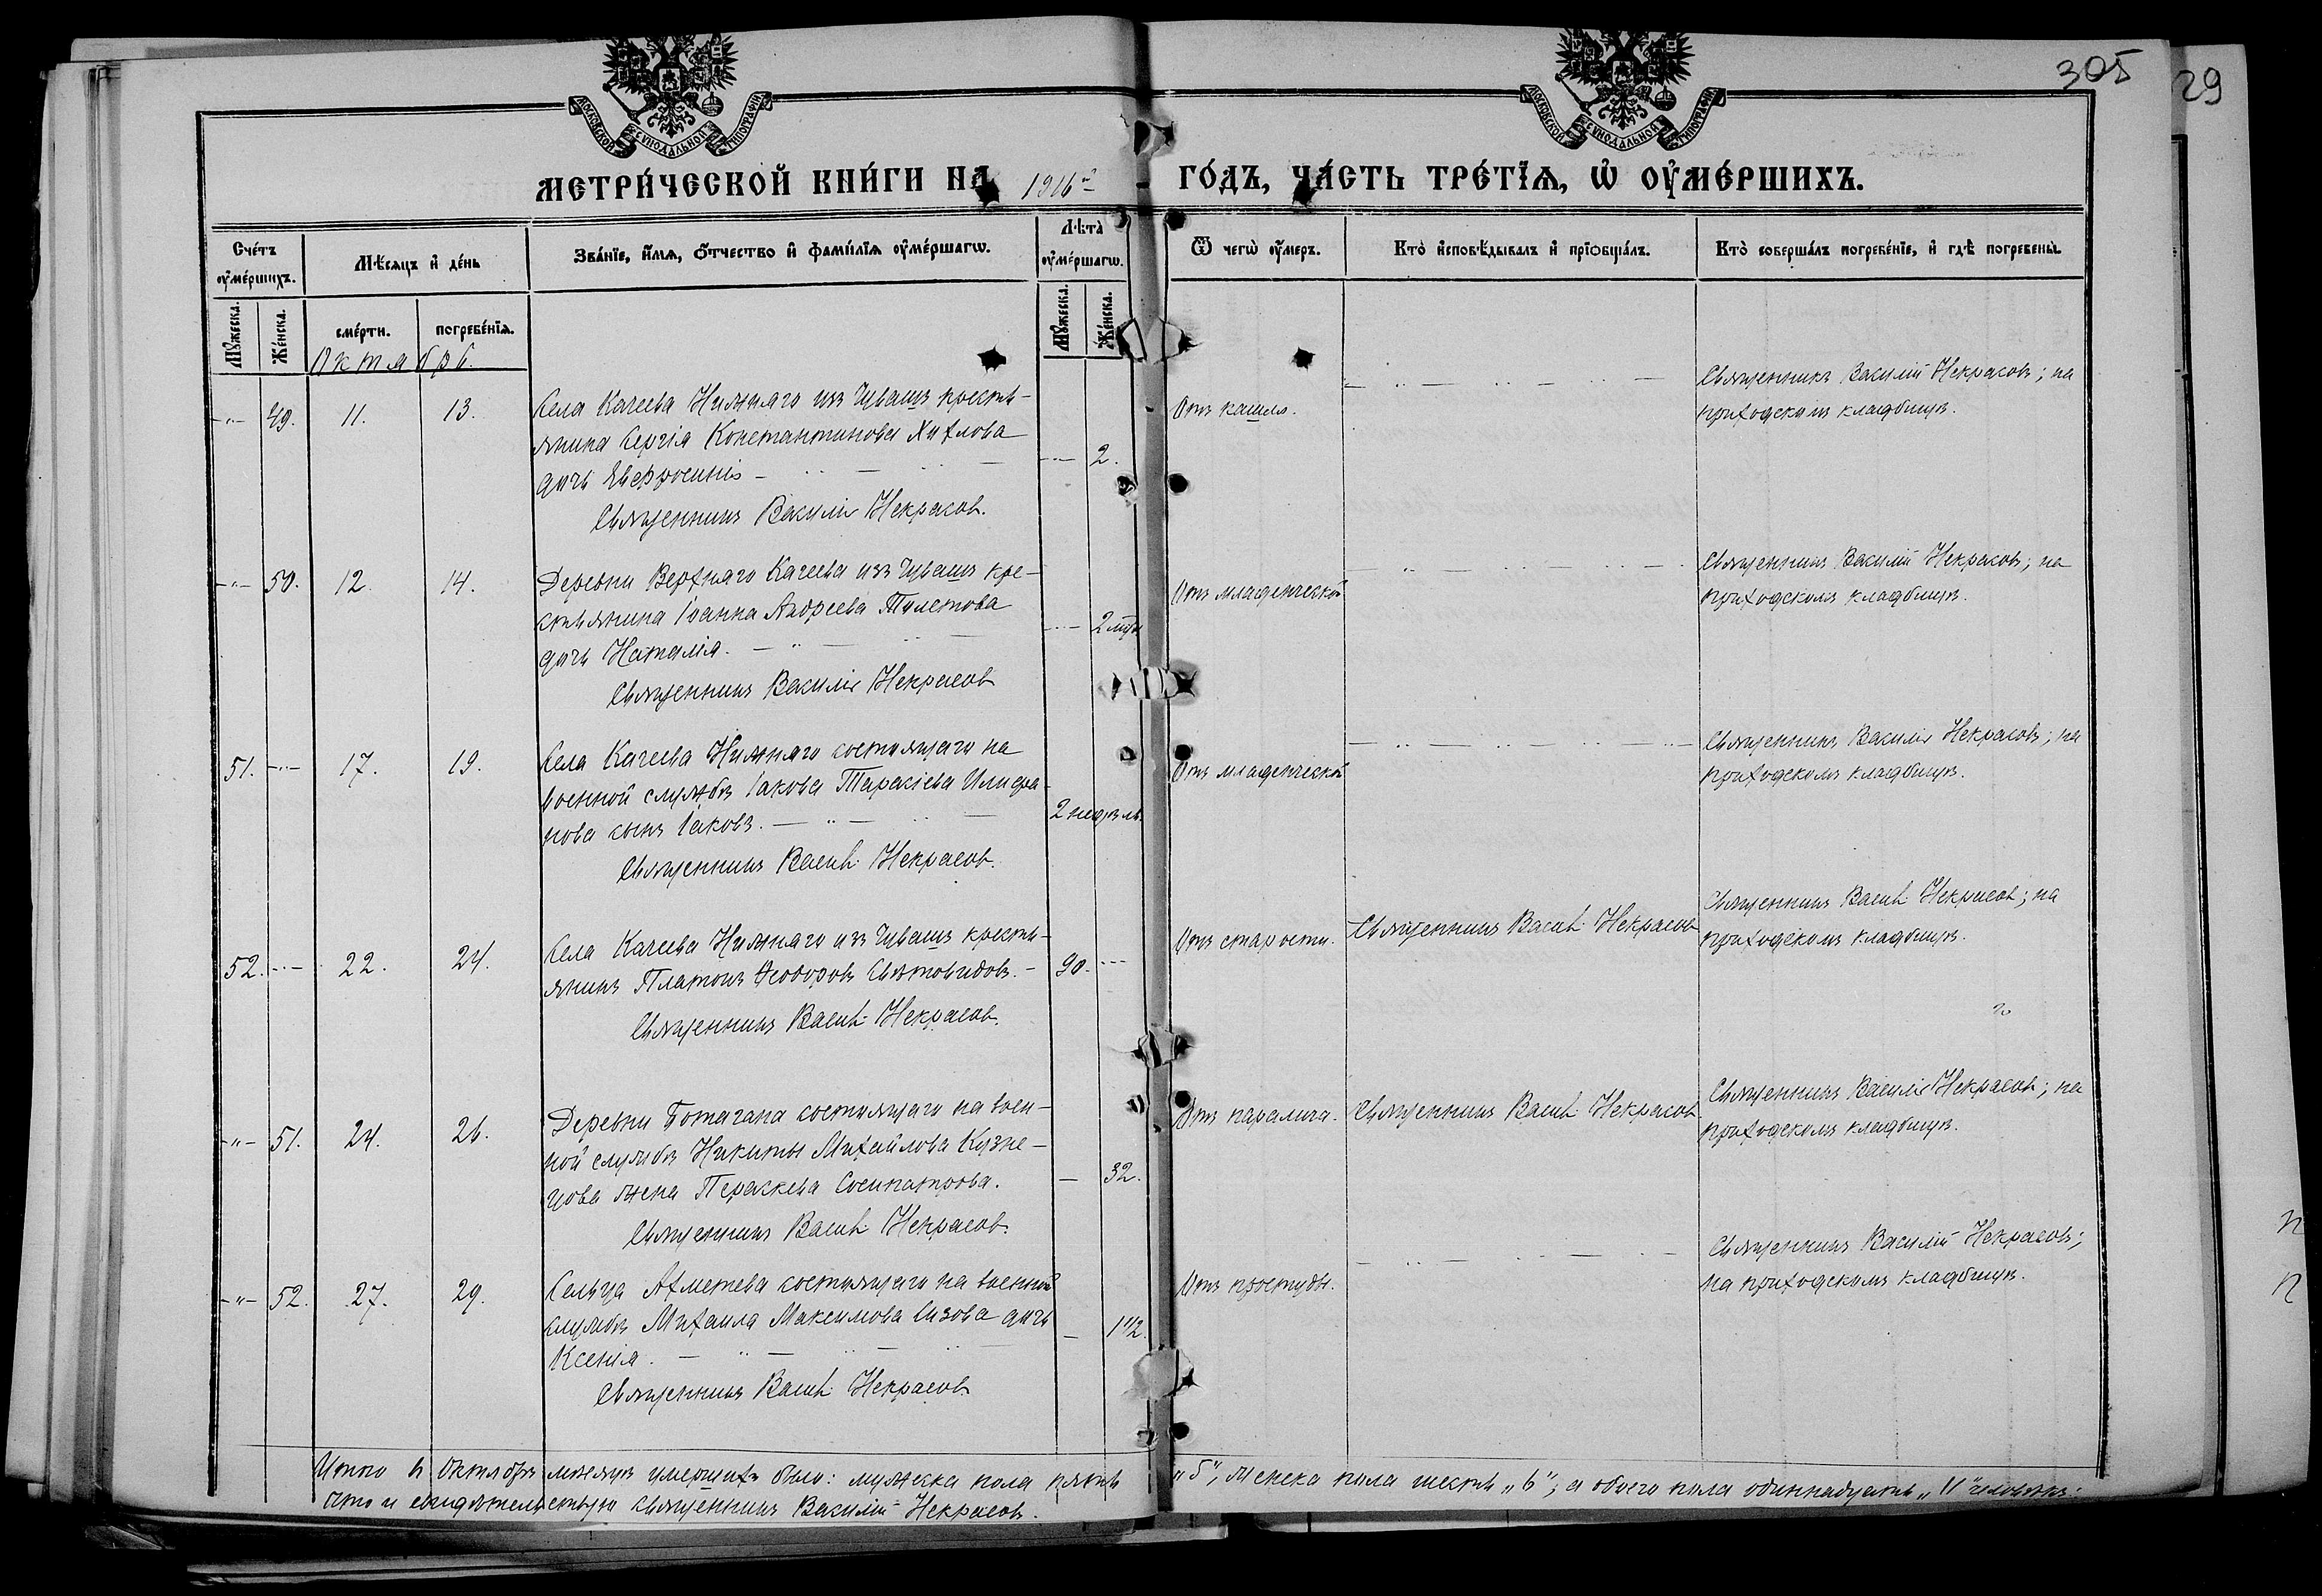 305
29
МОСКОВСКОЙ СѴНОДАЛЬНОЙ ТИПОГРАФІИ
МОСКОВСКОЙ СѴНОДАЛЬНОЙ ТИПОГРАФІИ
МЕТРИ́ЧЕСКОЙ КНИ́ГИ НА 1916й ГО́ДЪ, ЧА́СТЬ ТРЕ́ТІѦ, Ѡ҆ ОУ҆МЕ́РШИХЪ.
Счетъ оумершихъ.
Мѣсяцъ и день
Званїе, имя, отчество и фамилїя оумершагѡ.
Лѣта оумершагѡ.
Ѿ чегѡ оумеръ.
Кто исповѣдывалъ и прїобщалъ.
Кто совершалъ погребенїе, и гдѣ погребены.
Мужеска.
Женска.
смерти.
погребенїя.
Мужеска.
Женска.
Октябрь.
-"- 49. 11. 13.
Села Качеева Нижняго изъ Чувашъ кресть-
янина Сергія Константинова Хитлова
дочь Евфросинія -
Священникъ Василій Некрасовъ.
-"- 2.
Отъ кашля.
Священникъ Василій Некрасовъ; на
приходскомъ кладбищѣ.
-"- 50. 12. 14.
Деревни Верхняго Качеева изъ Чувашъ кре-
стьянина Іоанна Андреева
дочь Наталія.
Священникъ Василій Некрасовъ
-"- 2 мѣс.
Отъ младенческой
Священникъ Василій Некрасовъ; на
приходскомъ кладбищѣ.
51. -"- 17. 19.
Села Качеева Нижняго состоящаго на
военной службѣ Іакова Тарасіева
нова сынъ Іаковъ.
Священникъ Васил. Некрасовъ.
2 недѣль.
Отъ младенческой
Священникъ Василій Некрасовъ; на
приходскомъ кладбищѣ.
52. -"- 22. 24.
Села Качеева Нижняго изъ Чувашъ кресть-
янинъ Платонъ Ѳеодоровъ Свѣтовидовъ. -
Священникъ Васил. Некрасовъ.
90. -"-
Отъ старости.
Священникъ Васил. Некрасовъ
Священникъ Васил. Некрасовъ; на
приходскомъ кладбищѣ.
-"- 51. 24. 26.
Деревни Ботагана состоящаго на воен-
ной службѣ Никиты Михайлова Кузне-
цова жена Параскева Сосипатрова.
Священникъ Васил. Некрасовъ.
- 32.
Отъ паралича.
Священникъ Васил. Некрасовъ
Священникъ Василій Некрасовъ; на
приходскомъ кладбищѣ.
-"- 52. 27. 29.
Сельца Ахметева состоящаго на военной
службѣ Михаила Максимова Сизова дочь
Ксенія.
Священникъ Васил. Некрасовъ
- 1 1/2.
Отъ простуды.
Священникъ Василій Некрасовъ;
на приходскомъ кладбищѣ.
Итого въ Октябрѣ мѣсяцѣ умершихъ было: мужеска пола пять "5", женска пола шесть "6"; а обоего пола одиннадцать "11" человѣкъ:
Что и свидѣтельствую священникъ Василій Некрасовъ.